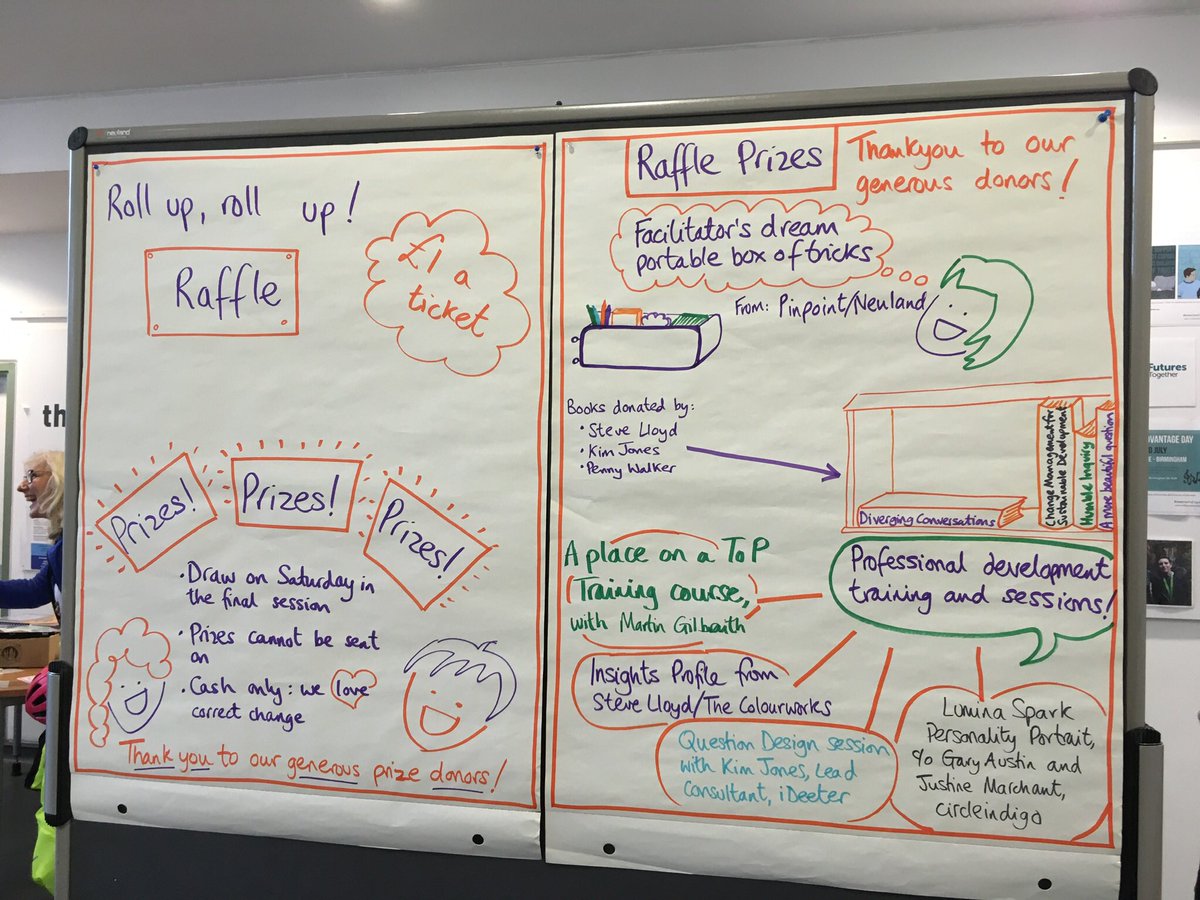 neuland
Roll up, roll up!
Raffle
£1 a
ticket
Prizes!
Prizes!
Prizes!
• Draw on Saturday in
the final session
• Prizes cannot be sent
on
• Cash only: we love
correct change
Thank you to our generous prize donors!
Raffle Prizes
Thankyou to our
generous donors!
Facilitator's dream
portable box of tricks
From: Pinpoint/Neuland
Books donated by:
• Steve Lloyd
• Kim Jones
• Penny Walker
Diverging Conversations
Change Management for
Sustainable Development
Humble Inquiry
A more beautiful question
A place on a ToP
Training course,
with Martin Gilbraith
Professional development
training and sessions!
Insights Profile from
Steve Lloyd/The Colourworks
Question Design session
with Kim Jones, Lead
Consultant, iDeeter
Lumina Spark
Personality Portrait,
c/o Gary Austin and
Justine Marchant,
circleindigo
th
Futures
Together
VANTAGE DAY
JULY
E - BIRMINGHAM